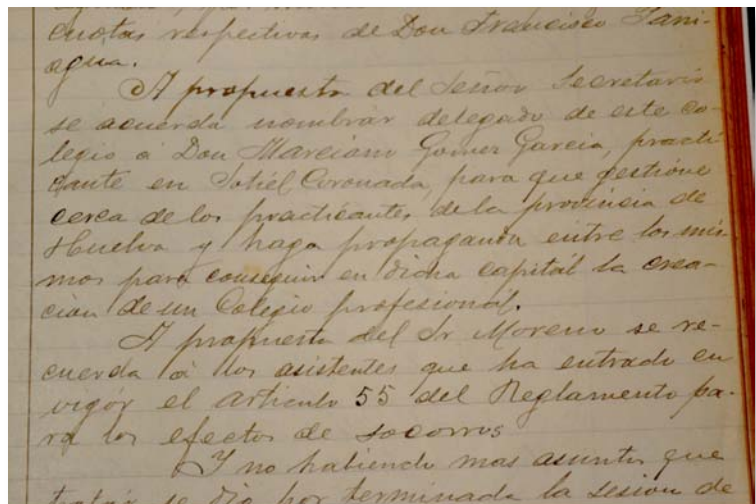 cuotas respectivas de Don Francisco Pani-
agua.
A propuesta del Señor Secretario
se acuerda nombrar delegado de este co-
legio á Don Marciano Gomez Garcia, practi-
cante en Sotiel Coronada, para que gestione
cerca de los practicantes de la provincia de
Huelva y haga propaganda entre los mis-
mos para conseguir en dicha capitál la crea-
ción de un Colegio profesional.
A propuesta del Sr Moreno se re-
cuerda á los asistentes que ha entrado en
vigór el articulo 55 del Reglamento pa-
ra los efectos de socorros
Y no habiendo mas asuntos que
tratar se dio por terminada la sesion de